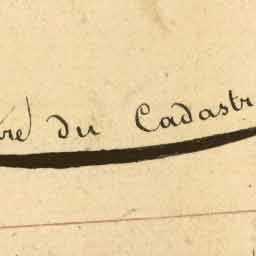 ré du Cadastr